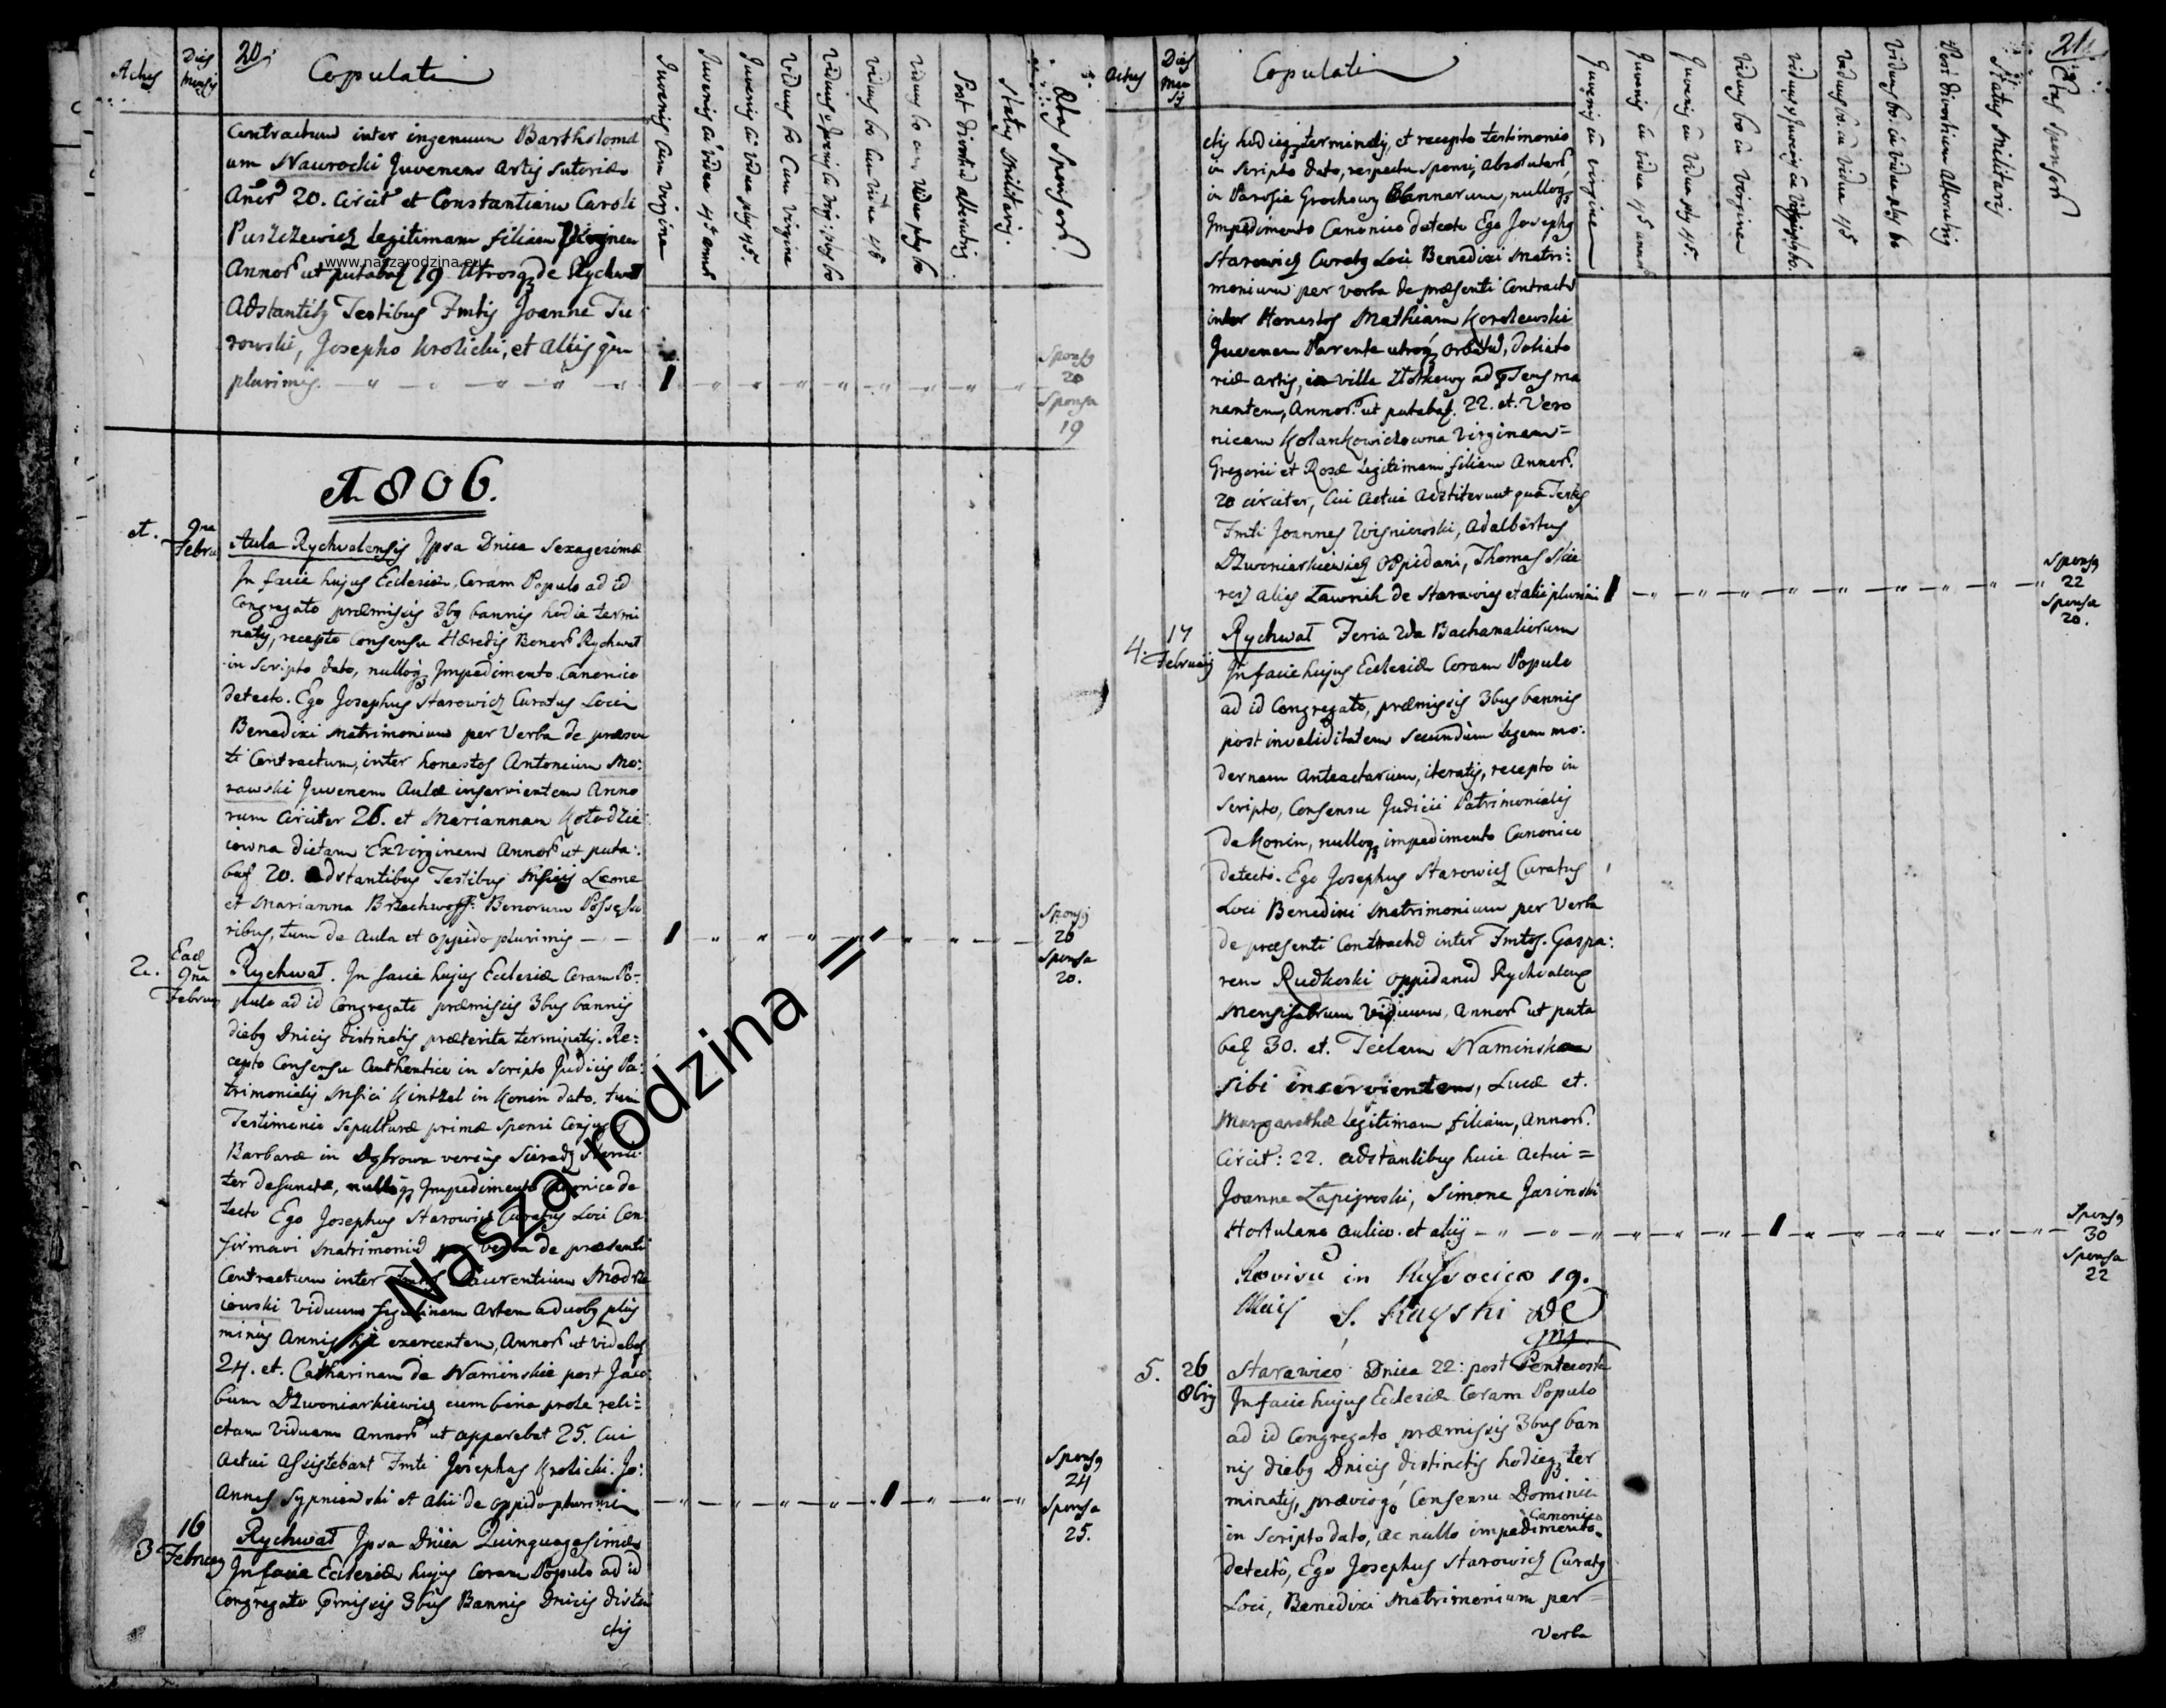 Actus
Dies Mensis
20.
Copulati
Juvenis cum Virgine
Juvenis cũ vidua 45 annor
Juvenis cũ vidua plus 45.
Viduus 60 cum Virgine
Viduus 60 cum vidua 45
Status Militaris
Ætas Sponsor
Contractum inter ingenuum Bartholomæ
um Nawrocki Juvenem Artis Sutoriæ
20. Circit et Constantiam Caroli
Puszczewicz legitimam filiam Virginem
ut putabat 19 Utrosq de Rychwał
Adstantib Testibus Fmtis Joanne Tu
rowski, Josepho Krolicki, et Aliis quam
plurimis.
1
Sponsg
20
Sponsa
19
1806.
1.
9na
Febru
Aula Rychvalensis Ipsa Dnica Sexagesimæ
In facie hujus Ecclesiæ. Coram Populo ad id
Congregato præmissis 3bg bannis hodie termi
natis, recepto Consensu Hæredis Bonor Rychwał
in Scripto dato, nulloq Impedimento Canonico
detecto. Ego Josephus Starowicz Curatus Loci
Benedixi Matrimonium per Verba de præsen
ti Contractum, inter honestos Antonium Mo:
rawski Juvenem Aulæ inservientem Anno
rum Circiter 26. et Mariannam Kołodzie
iowna dictam ExVirginem Annor ut puta:
bat 20. adstantibus Testibus Leone
et Marianna Bonorum Possesso
ribus, tum de Aula et oppido plurimis
1
Sponsg
26
Sponsa
20.
2.
Ead
9na
Februa
Rychwał. In facie hujus Ecclesiæ Coram Po:
pulo ad id Congregato præmissis 3bus bannis
diebg Dnicis distinctis præterita terminatis. Re:
cepto Consensu Authentico in Scripto Judicis Pa:
trimonialis Kintzel in Konin dato. tum
Testimonio Sepulturæ primæ Sponsi Conjugis
Barbaræ in Dąbrowa versus Sieradz
ter defunctæ, nulloq Impedimento Canonico de
tecto Ego Josephus Starowicz Curatus Loci Con
firmavi Matrimoniũ per verba de præsenti
Contractum inter Laurentium Modrze
iewski Viduum figulinam Artem a duobg plus
minus Annis hic exercentem, Annor ut videbat
24. et. Catharinam de Naminskie post Jaco
bum Dzwoniarkiewicz cum bina prole reli:
ctam Viduam Annor ut apparebat 25. Cui
Actui Assistebant Fmti Josephus Krolicki. Jo:
Annes Sypniewski et Alii de oppido plurimi
1
Sponsg
24
Sponsa
25.
3
16
Februarg
Rychwał Ipsa Dnica Quinquagesimæ
In facie Ecclesiæ hujus Coram Populo ad id
Congregato præmissis 3bus Bannis Dnicis distin
ctis
Actus
Dies Men sis
Copulati
21.
Juvenis cũ virgine
Juvenis cũ vidua 45 annor
Juvenis cũ vidua plg 45.
Viduus 60 cũ Virgine
Post divortium Alterutrig
Status Militaris
Ætas Sponsor
ctis hodieq terminatis, et recepto testimonio
in Scripto dato, respectu Sponsi, Absolutar
in Parofia Grochowy Bannarum, nulloq
Impedimento Canonico detecto Ego Josephg
Starowicz Curatg Loci Benedixi Matri:
monium per verba de præsenti Contractũ
inter Honestos Mathiam Korolewski
Juvenem Parente utroq orbatũ, doliato
riæ artis, in villa Złotkowy ad Tens ma
nentem, Annor. ut putabat. 22. et. Vero
nicam Kolankowiczowna Virginem=
Gregorii et Rosæ legitimam filiam Annor.
20 circiter, Cui Actui Adstiterunt qua Testes
Fmti Joannes Wisniewski, Adalbertus
Dzwoniarkiewicz Oppidani, Thomas
Ławnik de Starawies et alii plurimi
1
Sponsg
22
Sponsa
20.
4.
17
Februarij
Rychwał Feria 2da Bachanaliorum
In facie hujus Ecclesiæ Coram Populo
ad id Congregato, præmissis 3bus bannis
post invaliditatem secundùm legem mo:
dernam Anteactarum, iteratis, recepto in
Scripto, Consensu Judicii Patrimonialis
de Konin, nulloq impedimento Canonico
detecto. Ego Josephus Starowicz Curatus
Loci Benedixi Matrimonium per Verba
de præsenti Contractũ inter Fmtos. Gaspa:
rem Rudkoski oppidanũ Rychvalens
Viduum, Annor ut puta
bat 30. et. Teclam Naminska
sibi inservientem, Lucæ et.
Margarethæ legitimam filiam, Annor.
Circit: 22. adstantibus huic Actui=
Joanne Łapigroski, Simone Jasinski
Hortulano aulico. et aliis
1
Sponsg
30
Sponsa
22
in 19.
Maij
5.
26
8bris
Starawies Dnica 22: post Pentecosta
In facie hujus Ecclesiæ Coram Populo
ad id Congregato præmissis 3bus ban
nis diebg Dnicis distinctis hodieq ter
minatis, prævioq Consensu Dominii
in Scripto dato, ac nullo impedimento Canonico
detectô, Ego Josephus Starowicz Curatg
Loci, Benedixi Matrimonium per
Verba
www.naszarodzina.eu
= Nasza rodzina =